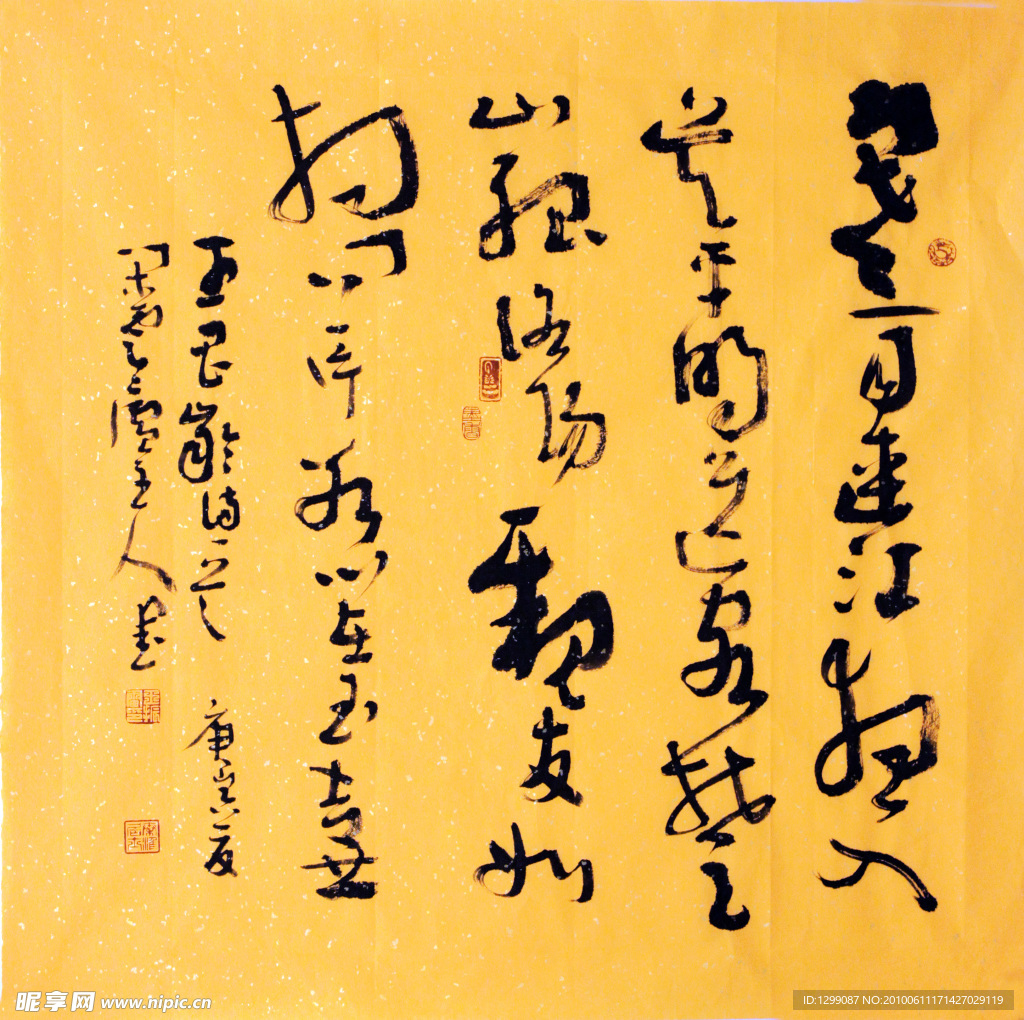 寒雨連江夜入
吳平明送客楚
山孤洛陽親友如
相问一片冰心在玉壺
王昌齡詩一首 庚寅夏
閑雲廬主人書
昵享网 www.hipic.cn
ID:1299087 NO:20100611171427029119